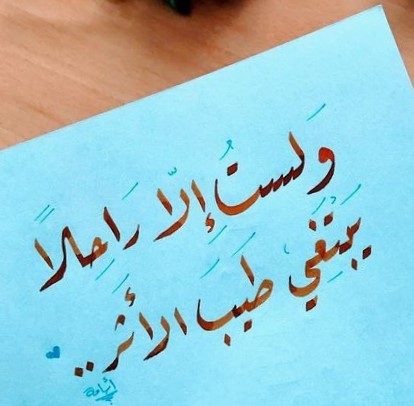 وَلستُ إلّا رَاحِلاً
يَبْتَغي طيبَ الأثَر..